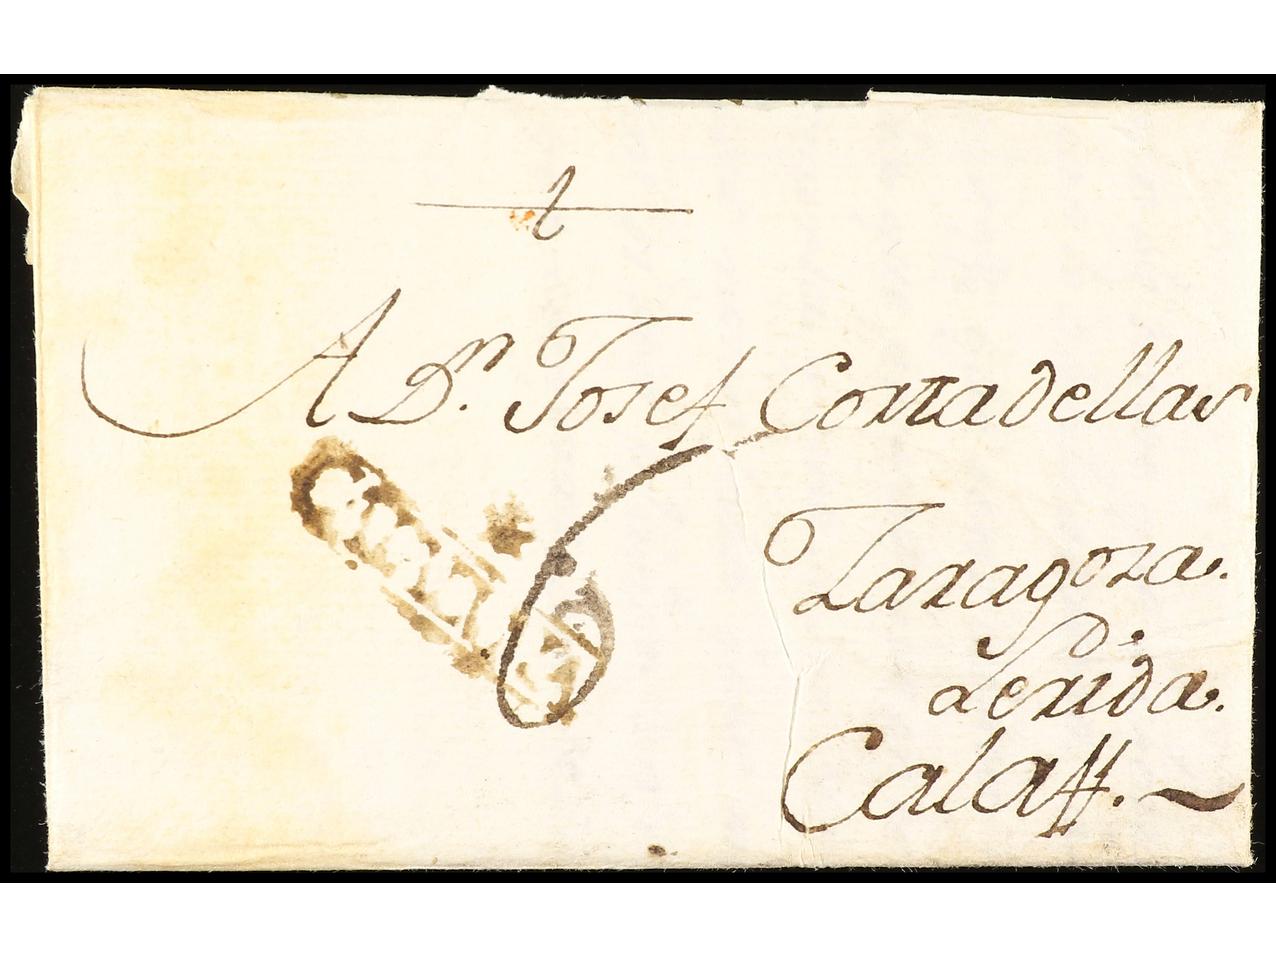 A Dn. Josef Cortadellas
6
Zaragoza.
Lerida.
Calaff.